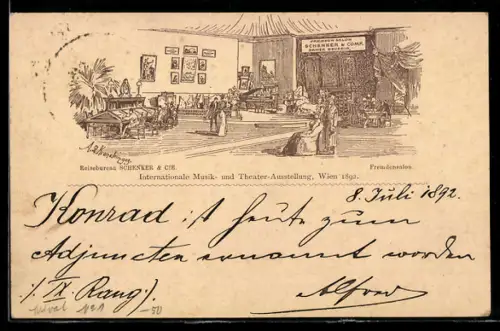 FREMDEN SALON
SCHENKER & COMP.
Reisebureau SCHENKER & CIE.
Fremdensalon.
Internationale Musik- und Theater-Ausstellung, Wien 1892.
8. Juli 1892.
Konrad ist heute zum
Adjuncten ernannt worden
/: IX. Rang :/.
Alfred